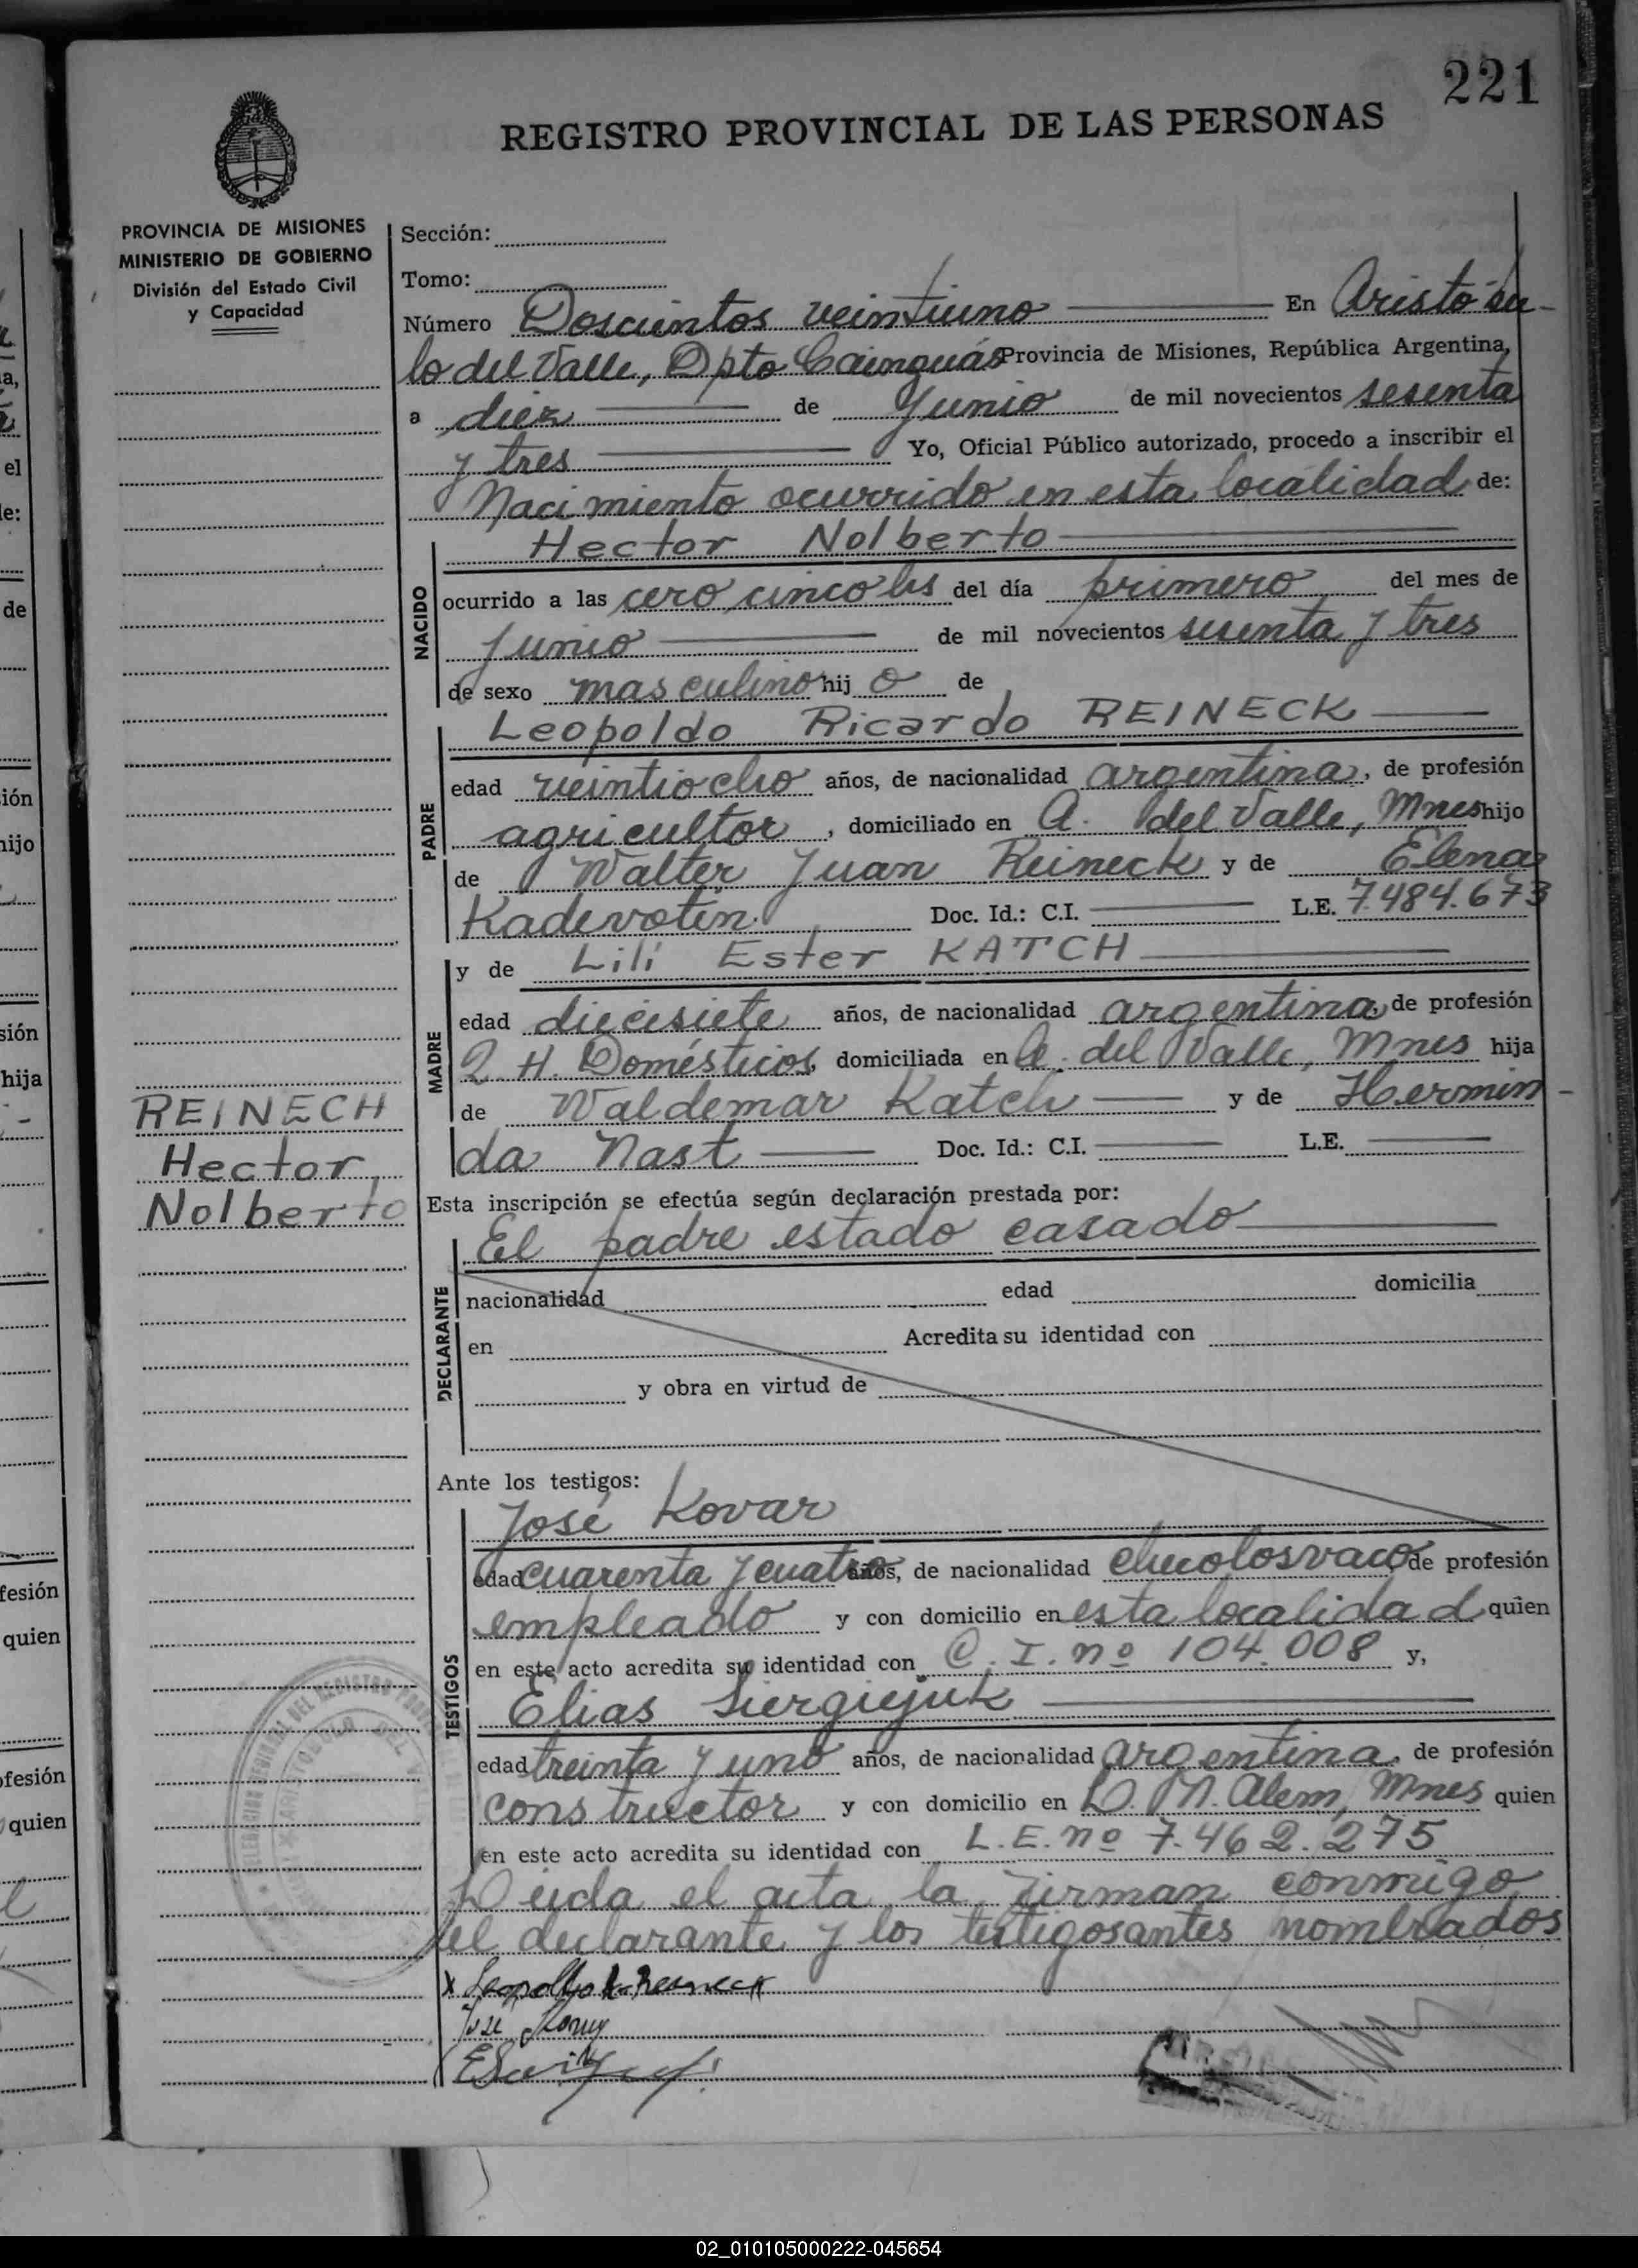 221
REGISTRO PROVINCIAL DE LAS PERSONAS
PROVINCIA DE MISIONES
MINISTERIO DE GOBIERNO
División del Estado Civil
y Capacidad
Sección:
Tomo:
Número Doscientos veintiuno En Aristóbu-
lo del Valle, Dpto Cainguás Provincia de Misiones, República Argentina,
a diez de Junio de mil novecientos sesenta
y tres Yo, Oficial Público autorizado, procedo a inscribir el
Nacimiento ocurrido en esta localidad de:
NACIDO
Hector Nolberto
ocurrido a las cero cinco hs del día primero del mes de
Junio de mil novecientos sesenta y tres
de sexo masculino hij o de
PADRE
Leopoldo Ricardo REINECK
edad veintiocho años, de nacionalidad argentina, de profesión
agricultor, domiciliado en A. del Valle, Mnes hijo
de Walter Juan Reineck y de Elena
Kadevotin Doc. Id.: C.I. L.E. 7.484.673
MADRE
y de Lili Ester KATCH
edad diecisiete años, de nacionalidad argentina, de profesión
Q. H. Domésticos, domiciliada en A. del Valle, Mnes hija
de Waldemar Katch y de Hermin-
da Nast Doc. Id.: C.I. L.E.
REINECH
Hector
Nolberto
Esta inscripción se efectúa según declaración prestada por:
DECLARANTE
El padre estado casado
nacionalidad edad domicilia
en Acredita su identidad con
y obra en virtud de
Ante los testigos:
TESTIGOS
José Kovar
edad cuarenta y cuatro años, de nacionalidad checolosvaco, de profesión
empleado y con domicilio en esta localidad quien
en este acto acredita su identidad con C. I. nº 104.008 y,
Elias Siergiejuk
edad treinta y uno años, de nacionalidad argentina, de profesión
constructor y con domicilio en L. N. Alem, Mnes quien
en este acto acredita su identidad con L.E. nº 7.462.275
Leida el acta la firman conmigo
el declarante y los testigos antes nombrados
02_010105000222-045654